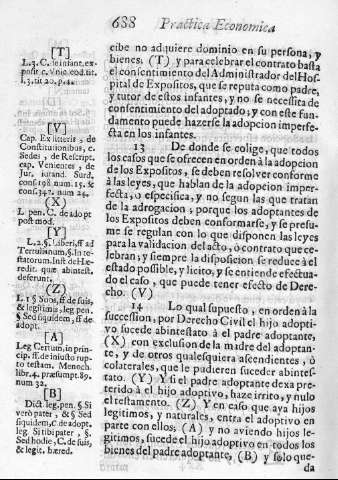 638 Practica Economica
[T]
L. 3. C. de infant. ex-
posit c. Vnic. eod. tit.
l. 3. tit. 20. p. 4.
[V]
Cap. Ex litteris, de
Constitutionibus, c.
Sedes, de Rescript.
cap. Veniences, de
Jur. iurand. Surd.
cons. 198. num. 15. &
cons. 342. num. 24.
(X)
L. pen. C. de adopt
post mod.
[Y]
L. 2. §. Liberi, ff ad
Tertulianum, §. In te-
statorum. Inst de He-
redit. quæ abintest.
deferunt.
(Z)
L. 1 § Suos, ff de suis,
& legitimis, leg pen.
§ Sed siquidem, ff de
adopt.
[A]
Leg Certum, in prin-
cip. ff. de iniusto rup-
to testam. Menoch.
libr. 4. præsumpt. 89.
num. 32.
[B]
Dict. leg. pen. § Si
verò pater, & § Sed
siquidem, C. de adopt.
leg. Si tibi pater, §.
Sed hodie, C. de suis,
& legit. hæred.
cibe no adquiere dominio en su persona, y
bienes. (T) y para celebrar el contrato basta
el consentimiento del Administrador del Hos-
pital de Expositos, que se reputa como padre,
y tutor de estos infantes, y no se necesita de
consentimiento del adoptado; y con este fun-
damento puede hazerse la adopcion imperfe-
cta en los infantes.
13 De donde se colige, que todos
los casos que se ofrecen en orden à la adopcion
de los Expositos, se deben resolver conforme
à las leyes, que hablan de la adopcion imper-
fecta, o especifica, y no segun las que tratan
de la adrogacion; porque los adoptantes de
los Expositos deben conformarse, y se presu-
me se regulan con lo que disponen las leyes
para la validacion del acto, ò contrato que ce-
lebran; y siempre la disposicion se reduce à el
estado posible, y licito, y se entiende efectua-
do el caso, que puede tener efecto de Dere-
cho. (V)
14 Lo qual supuesto, en orden à la
succession, por Derecho Civil el hijo adopti-
vo sucede abintestato à el padre adoptante,
(X) con exclusion de la madre del adoptan-
te, y de otros qualesquiera ascendientes, ò
colaterales, que le pudieren suceder abintes-
tato. (Y) Y si el padre adoptante dexa pre-
terido à el hijo adoptivo, haze irrito, y nulo
el testamento. (Z) Y en caso que aya hijos
legitimos, y naturales, entra el adoptivo en
parte con ellos; (A) y no aviendo hijos le-
gitimos, sucede el hijo adoptivo en todos los
bienes del padre adoptante, (B) y solo que-
da